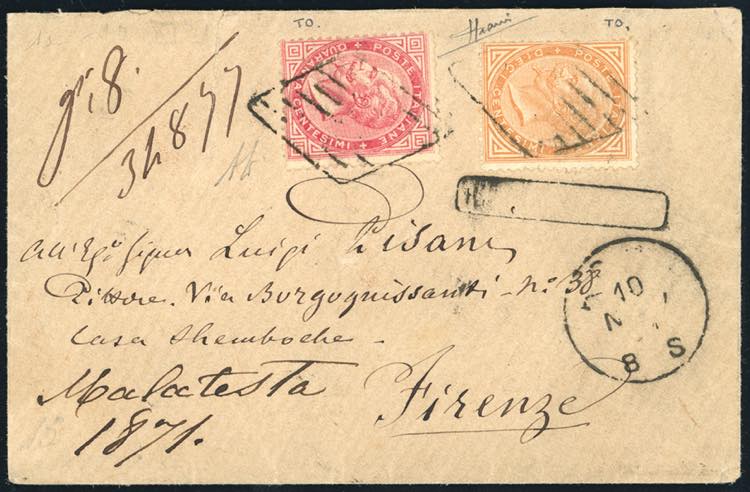 TO.
TO.
POSTE ITALIANE
QUARANTA CENTESIMI
POSTE ITALIANE
DIECI CENTESIMI
gr: 8.
34877
All'Egº Signor Luigi Pisani
Pittore. Via Borgognissanti - Nº 38
Casa Shemboche -
Malatesta Firenze
1871.
10
8 S